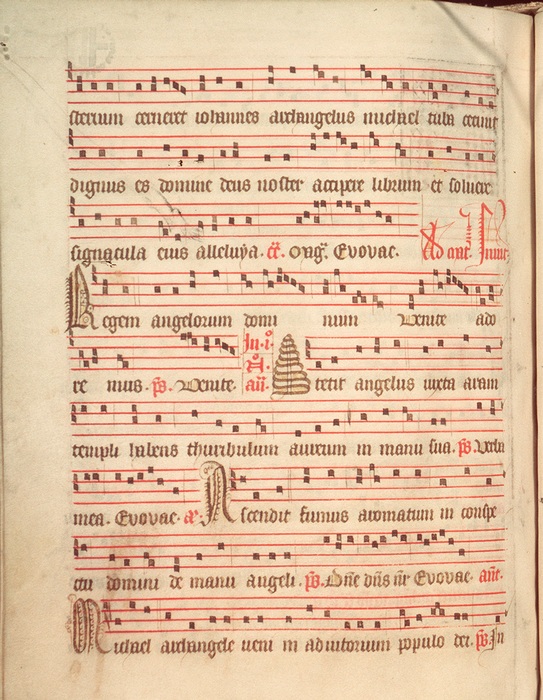 sterium cerneret iohannes archangelus michael tuba cecinit
dignus es domine deus noster accipere librum et soluere
signacula eius alleluya. Evovae.
Regem angelorum domi num Venite ado
re mus. ps. Venite. Stetit angelus iuxta aram
templi habens thuribulum aureum in manu sua. ps. Verba
mea. Evovae. Ascendit fumus aromatum in conspe
ctu domini de manu angeli. ps. Dñe dñs nr Evovae. añe.
Michael archangele ueni in adiutorium populo dei. ps. In